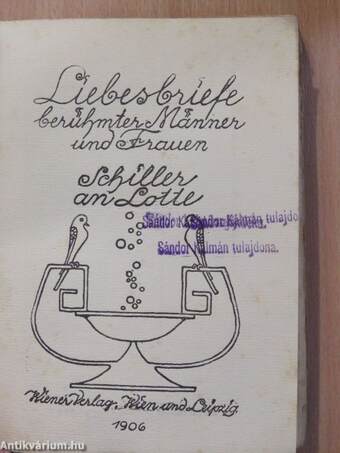 Liebesbriefe
berühmter Männer
und Frauen
Schiller
an Lotte
Sándor Kálmán tulajdona.
Sándor Kálmán tulajdona.
Wiener Verlag, Wien und Leipzig
1906
Antikvárium.hu